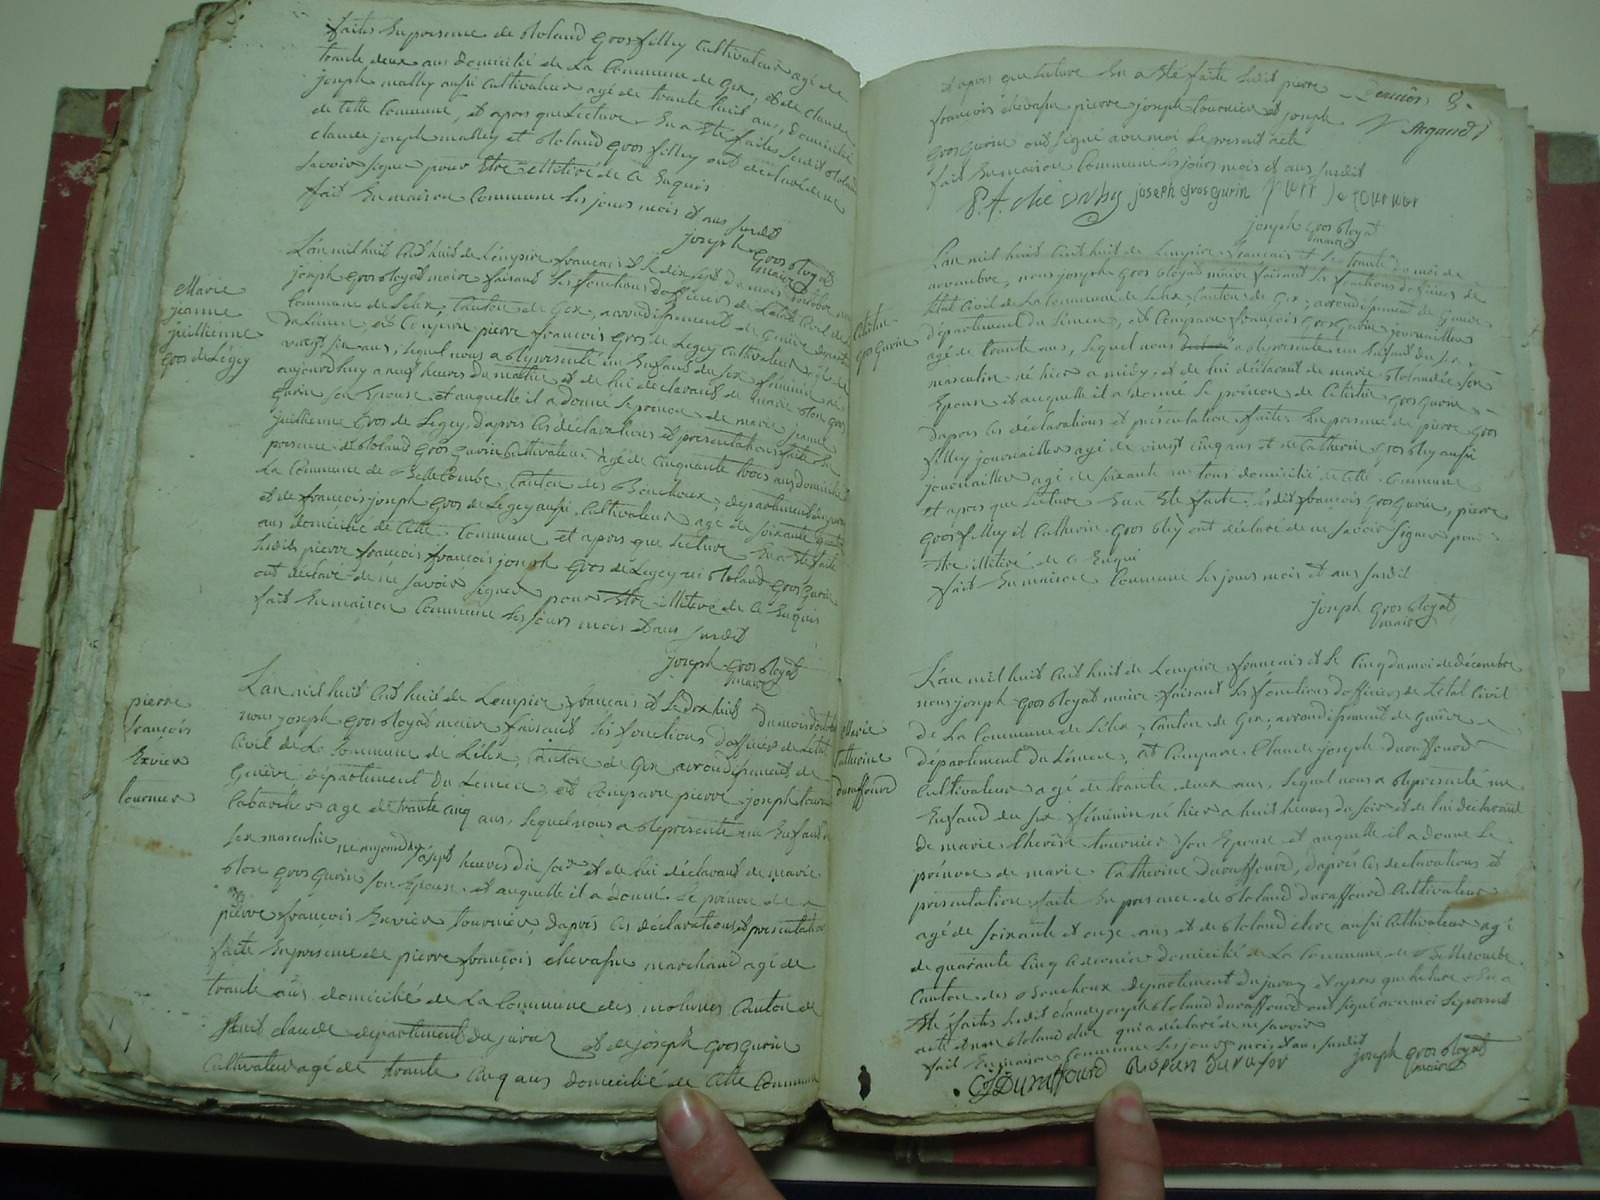 faites en presence de Roland Gros filley Cultivateur agé de
trante deux ans domicilié de La Commune de Gex, et de Claude
joseph malley aussi Cultivateur agé de trante huit ans, domicilié
de Cette Commune, et apres que Lecture En a Eté faites Susdit Roland
Claude joseph malley et Roland Gros filley ont déclaré ne
savoir signer pour Etre illitéré de Ce Enquis
fait En maison Commune Les jours mois et ans Susdit
joseph Gros Royat
maire
Marie
jeanne
juillienne
Gros de Légey
L'an mil huit Cent huit de L'empire francais et le dix sept du mois
joseph Gros Royat maire faisant Les fonctions d'officier de L'etat Civil de
Commune de Lélex, Canton de Gex, arrondissement de Genève
du Léman, est Comparu pierre françois Gros de Legey Cultivateur agé de
vingt six ans, Lequel nous a Répresenté un Enfand du sex féminin
aujourd'huy a neuf heures du mattin et de lui déclarant de marie Rose Gros
Gurin son Epouse et auquelle il a donné Le prenon de marie jeanne
juillienne Gros de Legey, dapres Les déclarations et présentations faite En
presence de Roland Gros Gurin Cultivateur agé de Cinquante trois ans domicilié
La Commune de Belle Combe Canton des Bouchoux, departement du jura
et de françois joseph Gros de Legey aussi Cultivateur agé de soixante quatre
ans domicilié de Cette Commune et apres que Lecture En a Eté faite
Susdits pierre françois, françois joseph Gros de Legey et Roland Gros Gurin
ont déclaré de ne savoir signer pour Etre illiteré de Ce Enquis
fait En maison Commune Les jours mois et ans Susdit
joseph Gros Royat
maire
pierre
françois
Exvier
tournier
L'an mil huit Cent huit de L'empire francais et Le dix huit du mois d'octobre
nous joseph Gros Royat maire faisant Les fonctions d'officier de L'etat
Civil de La Commune de Lélex, Canton de Gex arrondissement de
Genève département du Léman, est Comparu pierre joseph tournier
Cabaretier agé de trante cinq ans, Lequel nous a Répresenté un Enfand du
sex masculin né aujourd'huy a sept heures du soir et de lui déclarant de marie
Rose Gros Gurin son Epouse, et auquelle il a donné Le prenon de
pierre françois Exvier tournier dapres Les déclarations et presentation
faite En presence de pierre françois chevassu marchand agé de
trante ans domicilié de La Commune des molunes Canton de
Saint claude departement du jura et de joseph Gros Gurin
Cultivateur agé de trante Cinq ans domicilié de Cette Commune
et apres que Lecture En a Eté faite Susdit pierre
françois chevassu pierre joseph tournier et joseph
Gros Gurin ont signé avec moi Le present acte
fait En maison Commune Les jours mois et ans Susdit
8.
joseph gros gurin
joseph Gros Royat
maire
Célestin
Gros Gurin
L'an mil huit Cent huit de L'empire francais et Le trante du mois de
novembre, nous joseph Gros Royat maire faisant Les fonctions d'officier de
L'etat Civil de La Commune de Lélex Canton de Gex, arrondissement de Genève
département du Léman, est Comparu françois Gros Gurin journaillier
agé de trante ans, Lequel nous a Répresenté un Enfand du sex
masculin né hier a midy, et de lui déclarant de marie Rolandez son
Epouse et auquelle il a donné Le prénon de Célestin Gros Gurin
dapres Les déclarations et présentation faites En presence de pierre Gros
filley journaillier agé de vingt cinq ans et de Catherin Gros Rey aussi
journaillier agé de soixante ans tous domicilié de Cette Commune
et apres que Lecture En a Eté faite Susdit françois Gros Gurin, pierre
Gros filley et Catherin Gros Rey ont déclaré de ne savoir signer pour
Etre illitéré de Ce Enqui
fait En maison Commune Les jours mois et ans Susdit
joseph Gros Royat
maire
Marie
Catherine
duraffourd
L'an mil huit Cent huit de L'empire francais et Le Cinq du mois de décembre
nous joseph Gros Royat maire faisant Les fonctions d'officier de L'etat Civil
de La Commune de Lélex, Canton de Gex, arrondissement de Genève
département du Léman, est Comparu Claude joseph duraffourd
Cultivateur agé de trante deux ans, Lequel nous a Répresenté un
Enfand du sex féminin né hier a huit heures du soir et de lui déclarant
de marie therèse tournier son Epouse et auquelle il a donné Le
prénon de marie Catherine duraffourd, dapres Les declarations et
présentation faite En presence de Roland duraffourd Cultivateur
agé de soixante et onze ans et de Roland clerc aussi Cultivateur agé
de quarante Cinq Ce dernier domicilié de La Commune de Bellecombe
Canton des Bouchoux departement du jura, et apres que Lecture En a
Eté faites Susdit claude joseph Roland duraffourd ont signé avec moi Le present
acte et non Roland clerc qui a déclaré de ne savoir
fait En maison Commune Les jours mois et ans Susdit
joseph Gros Royat
maire
CJ Duraffourd